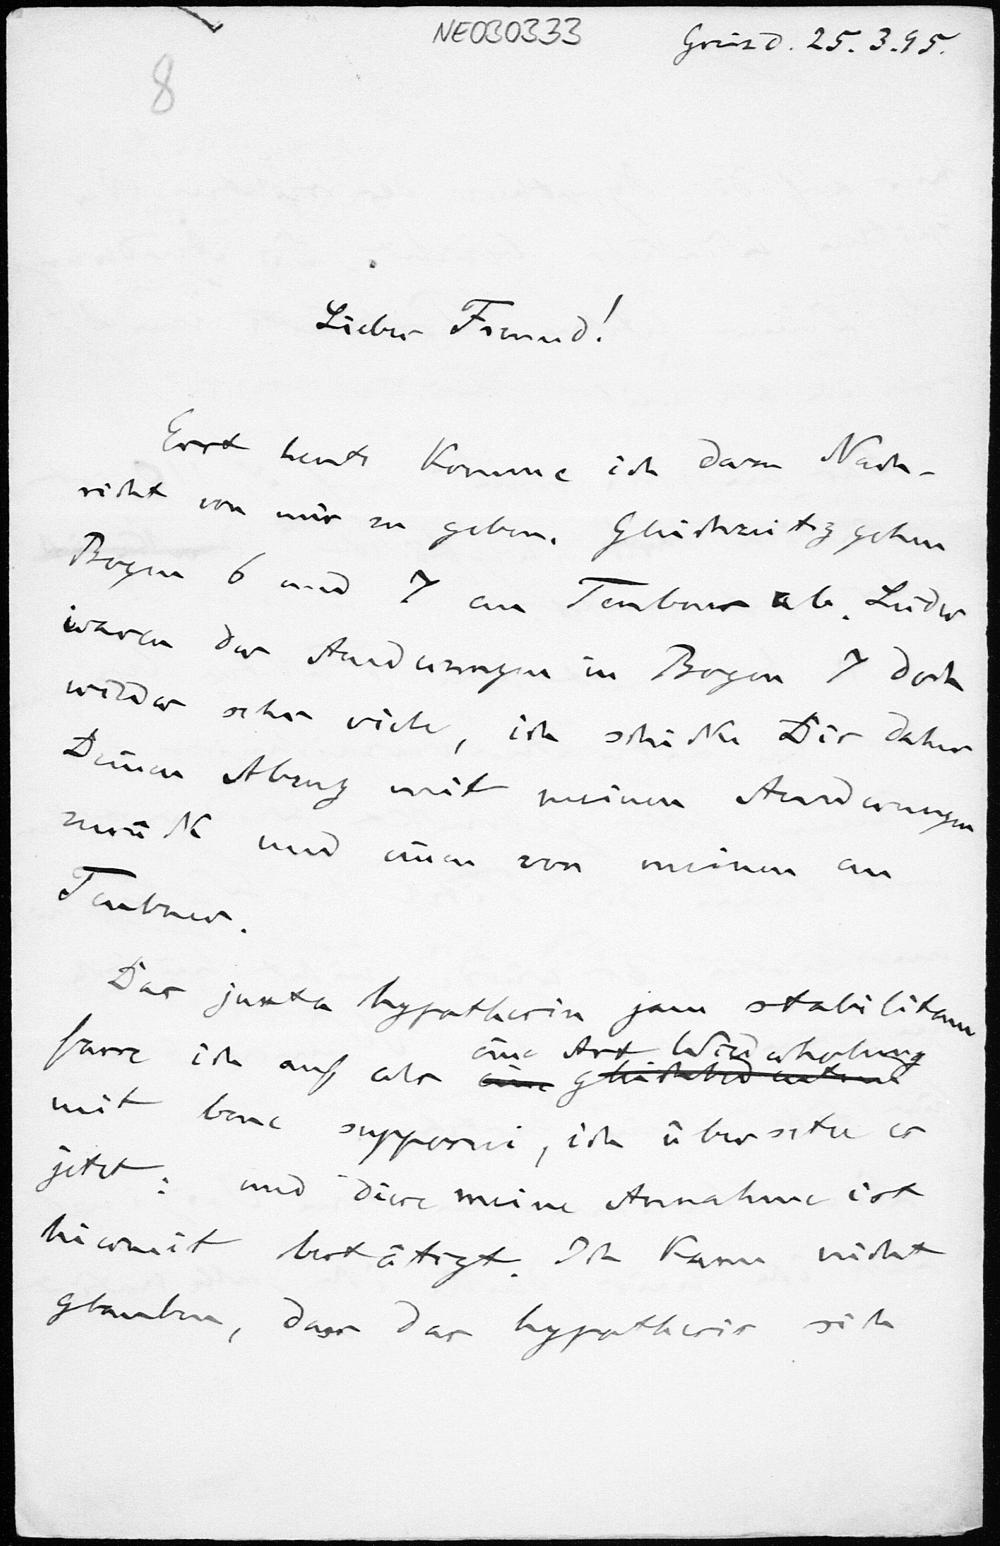 NE030333
Greisd. 25.3.95.
8
Lieber Freund!
Erst heute komme ich dazu Nach-
richt von mir zu geben. Gleichzeitig gehen
Bogen 6 und 7 an Teubner ab. Leider
waren der Aenderungen in Bogen 7 doch
wieder sehr viele, ich schicke Dir daher
Deinen Abzug mit meinen Aenderungen
zurück und einen von meinen an
Teubner.
Das juxta hypothesin jam stabilitam
fasse ich auf als eine gleichbedeutend eine Art Wiederholung
mit bene supposui, ich übersetze es
jetzt: und diese meine Annahme ist
hiermit bestätigt. Ich kann nicht
glauben, dass das hypothesis sich